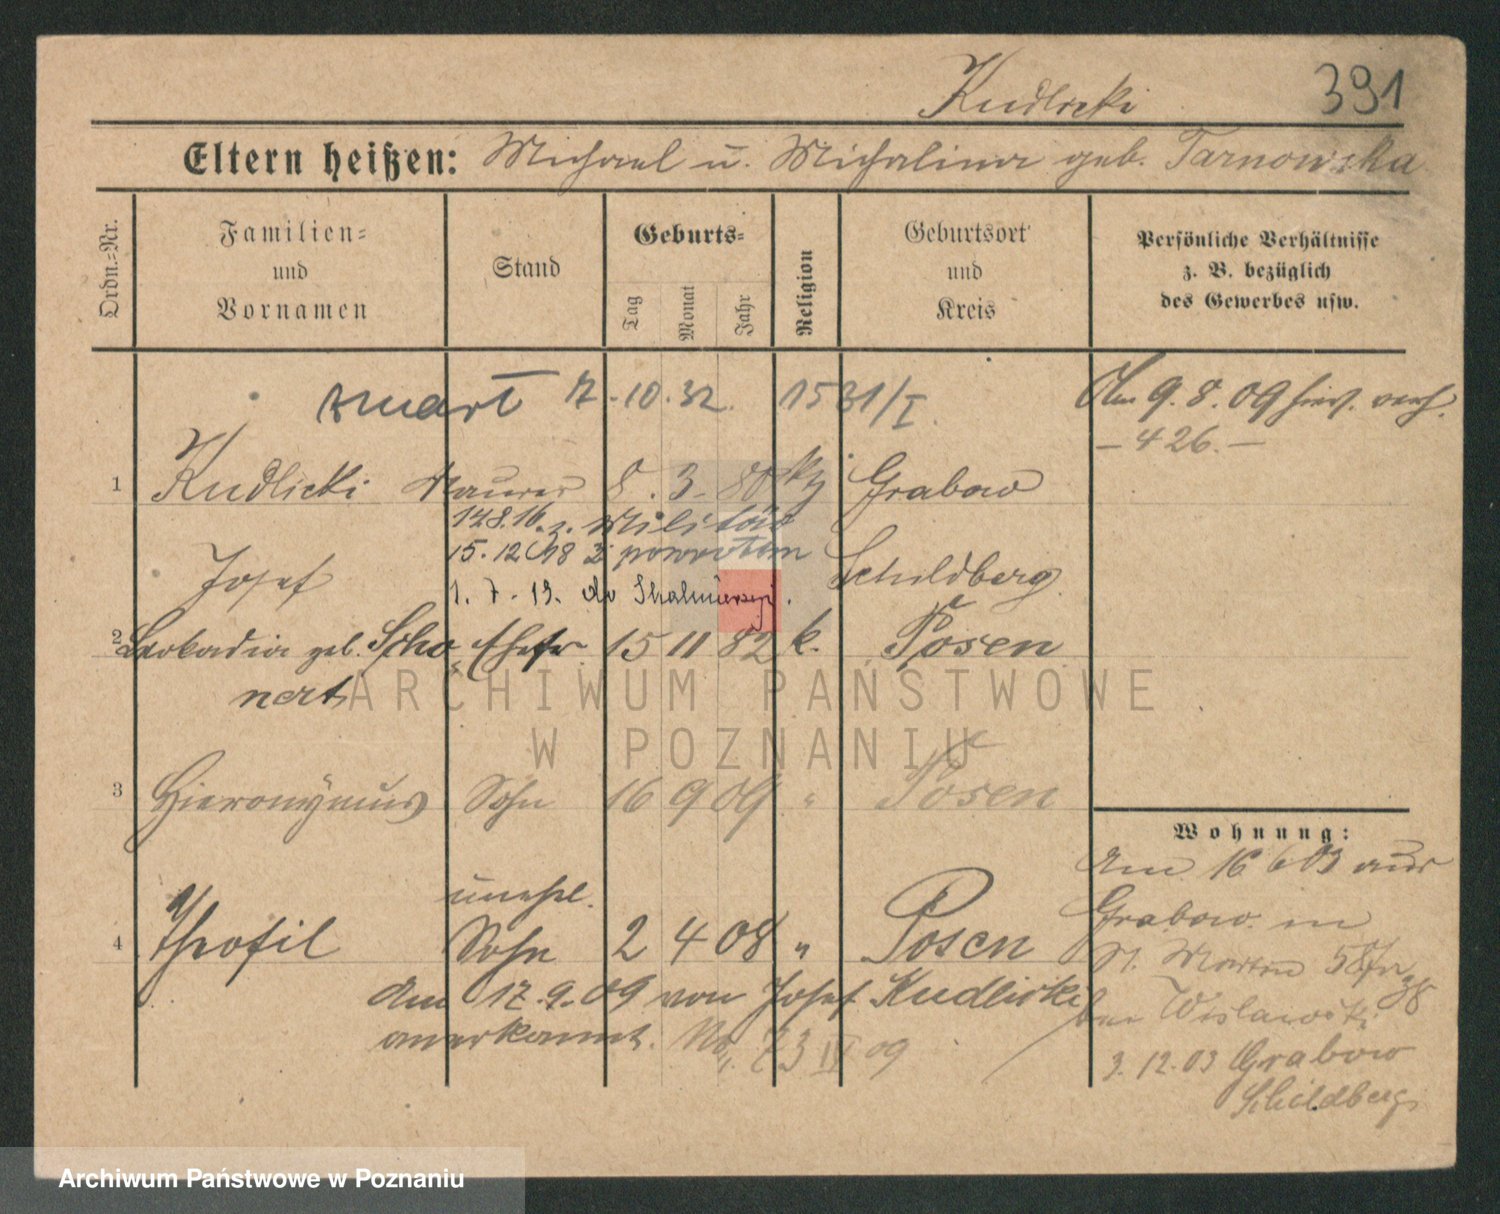 Kudlicki 391
Eltern heißen: Michael u. Michalina geb. Tarnowska
Ordn.-Nr.
Familien-
und
Vornamen
Stand
Geburts-
Tag
Monat
Jahr
Religion
Geburtsort
und
Kreis
Persönliche Verhältnisse
z. B. bezüglich
des Gewerbes usw.
zmarł 7.10.32. 1531/I.
Am 9.8.09 verh.
- 426. -
1 Kudlicki Maurer 8. 3. 80 Grabow
17.8.16. z. Militär
15.12.18 z powrotem
Josef Schildberg
1.7.19. do Skalmierzyc.
2 Leokadia geb. Scho Ehefr 15 11 82 k. Posen
nert
3 Hieronÿmus Sohn 16 9 09 " Posen
unehl.
4 Theofil Sohn 2 4 08 " Posen
Am 17.9.09 von Josef Kudlicki
anerkannt. No. 73 IV 09
Wohnung:
Am 16 6 03 aus
Grabow in
St. Martin 58
bei
3.12.03 Grabow
Schildberg
ARCHIWUM PAŃSTWOWE
W POZNANIU
Archiwum Państwowe w Poznaniu